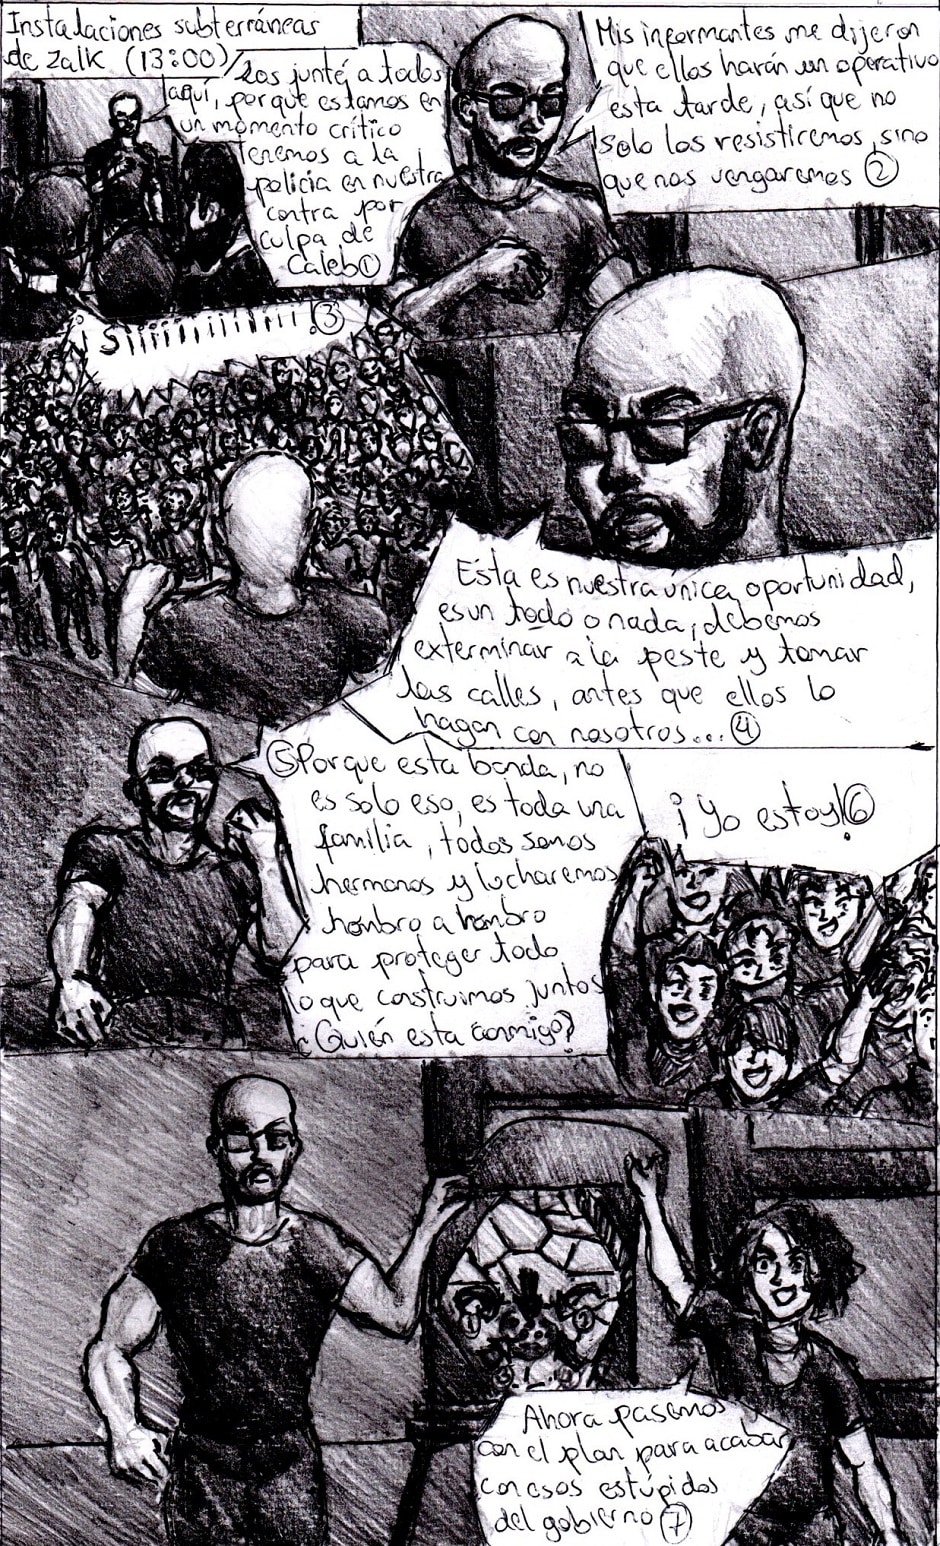 Instalaciones subterráneas
de Zalk (13:00)
Los junté a todos
aquí, porque estamos en
un momento crítico
tenemos a la
policia en nuestra
contra por
culpa de
Caleb①
Mis informantes me dijeron
que ellos harán un operativo
esta tarde, así que no
solo los resistiremos, sino
que nos vengaremos ②
¡Siiiiiiiiiiiii!③
Esta es nuestra única oportunidad,
es un todo o nada, debemos
exterminar a la peste y tomar
las calles, antes que ellos lo
hagan con nosotros...④
⑤Porque esta banda, no
es solo eso, es toda una
familia, todos somos
hermanos y lucharemos
hombro a hombro
para proteger todo
lo que construimos juntos
¿Quién esta conmigo?
¡Yo estoy!⑥
Ahora pasemos
con el plan para acabar
con esos estúpidos
del gobierno⑦